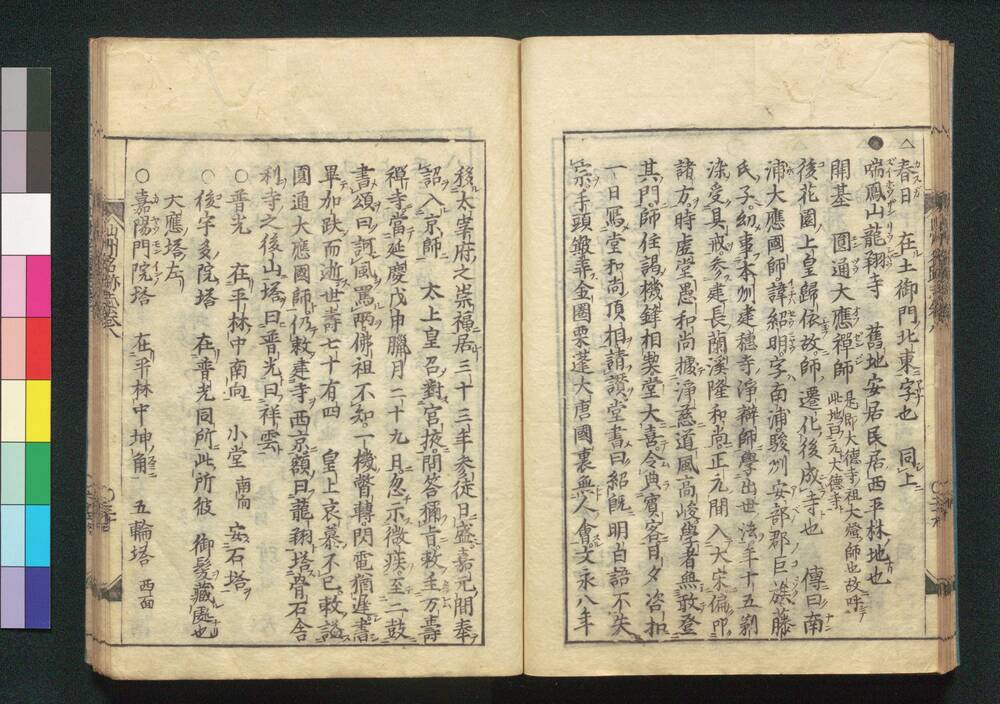 △春日　在土御門北東字也　同上
瑞鳳山龍翔寺　舊地安居民居西平林地也
開基　圓通大應禪師　是即大德寺祖大燈師也故呼此地曰元大德寺
後花園上皇歸依故師遷化後成寺也　傳曰南
浦大應國師諱紹明字南浦駿州安部郡巨族藤
氏子幼事本州建穗寺淨辯師學出世法年十五剃
染受具戒參建長蘭溪隆和尚正元間入大宋徧叩
諸方時虚堂愚和尚據淨慈道風高峻學者無敢登
其門師徃謁機鋒相契堂大喜令典賓客日夕咨扣
一日寫堂和尚頂相請讃堂書曰紹既明白語不失
宗手頭簸弄金圈栗蓬大唐國裏無人會文永八年
移太宰府之崇福居三十三年參徒日盛嘉元間奉
詔入京師　太上皇召對宮掖問答稱旨敕主万壽
禪寺當延慶戊申臘月二十九日忽示微疾至二鼓
書頌曰訶風罵雨佛祖不知一機瞥轉閃電猶遲書
畢加趺而逝世壽七十有四　皇上哀慕不已敕謚
圓通大應國師仍敕建寺西京額曰龍翔塔骨石舍
利寺之後山塔曰普光曰祥雲
○普光　在平林中南向　小堂南向　安石塔
○後宇多院塔　在普光同所此所彼　御髮藏處也
大應塔左
○嘉陽門院塔　在平林中坤角　五輪塔　西面